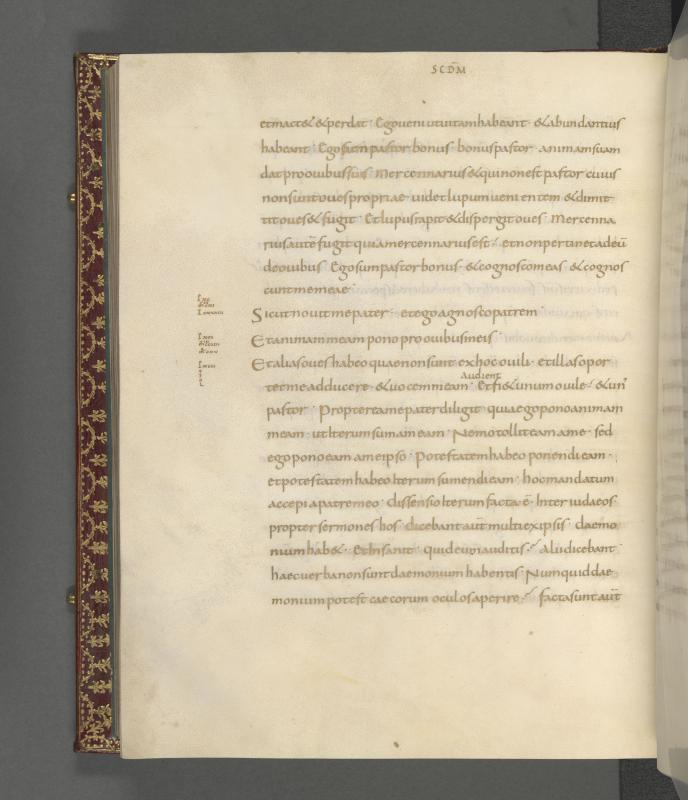 SCDM̅
et mact& & perdat · Ego ueni ut uitam habeant · & abundantius
habeant · Ego sum pastor bonus · bonus pastor · animam suam
dat pro ouibus suis · Mercennarius & qui non est pastor cuius
non sunt oues propriae · uidet lupum uenientem & dimit
tit oues & fugit · Et lupus rapit & dispergit oues · Mercenna
rius autē fugit quia mercennarius est · et non pertinet ad eū
de ouibus · Ego sum pastor bonus · & cognosco meas · & cognos
cunt me meae ·
Sicut nouit me pater · et ego agnosco patrem ·
Et animam meam pono pro ouibus meis ·
Et alias oues habeo quae non sunt ex hoc ouili · et illas opor
audient
tet me adducere · & uocem meam · Et fi& unum ouile · & un'
pastor · Propterea me pater diligit · quia ego pono animam
meam · ut Iterum sumam eam · Nemo tollit eam a me · sed
ego pono eam a me ipso · Potestatem habeo ponendi eam ·
et potestatem habeo Iterum sumendi eam · hoc mandatum
accepi a patre meo · dissensio Iterum facta ē · Inter iudaeos
propter sermones hos · dicebant aūt multi ex ipsis · daemo
nium hab& · Et Insanit · quid eum auditis · Alii dicebant ·
haec uerba non sunt daemonium habentis · Numquid dae
monium potest caecorum oculos aperire · facta sunt aūt